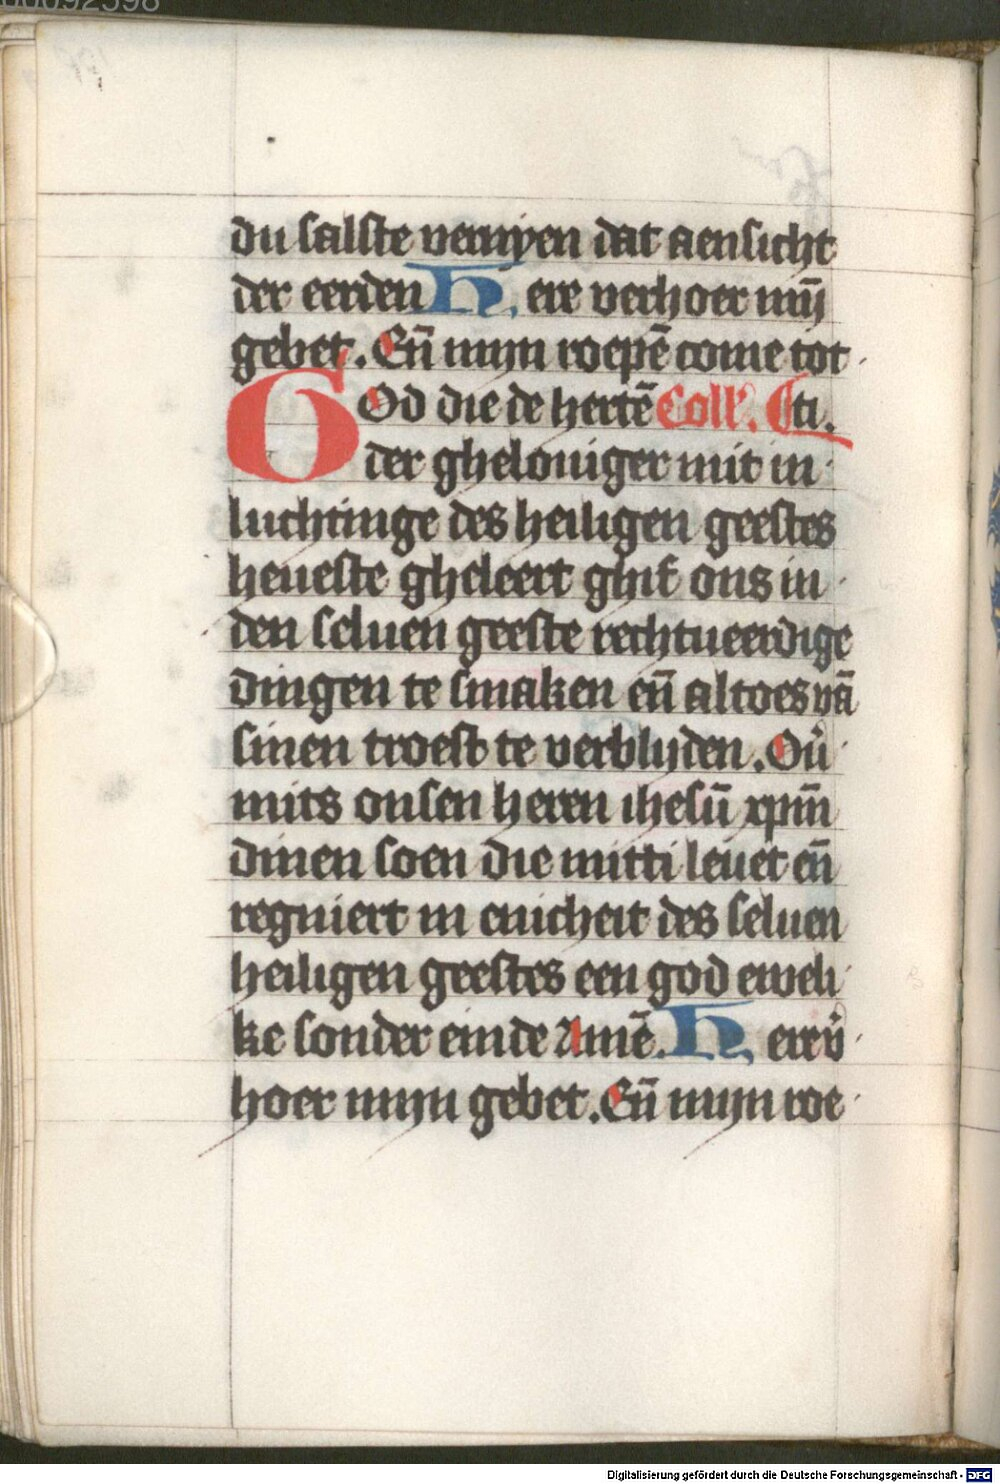 du salste vernyen dat aensicht
der eerden Here verhoer mȳ
gebet. En̄ myn roepē come tot
GOd die de hertē Coll'. ti.
der gheloviger mit in
luchtinge des heiligen geestes
heueste gheleert ghif ons in
den seluen geeste rechtueerdige
dingen te smaken en̄ altoes vā
sinen troest te verblijden. Ou̅
mits onsen heren ihesū xpm̄
dinen soen die mitti leuet en̄
regniert in enicheit des seluen
heiligen geestes een god eweli
ke sonder einde Amē. Here v̄
hoer myn gebet. En̄ myn roe
Digitalisierung gefördert durch die Deutsche Forschungsgemeinschaft - DFG